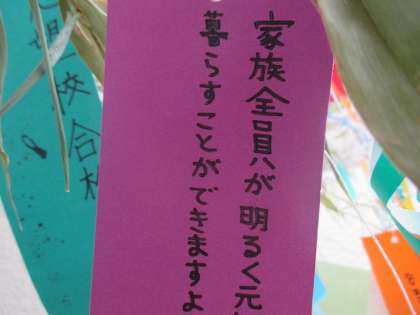 家族全員が明るく元
暮らすことができますよ
校合格